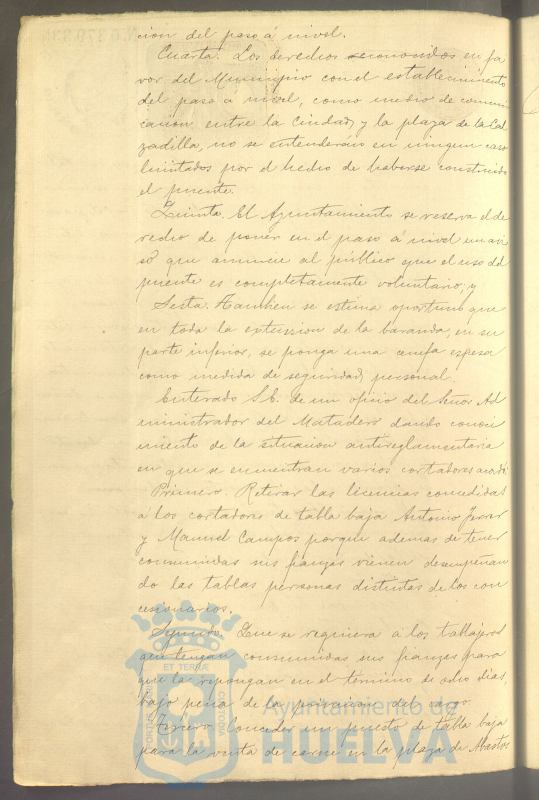 cion del paso á nivel.
Cuarta. Los derechos reconocidos en fa
vor del Municipio con el establecimiento
del paso a nivel, como medio de comuni
cacion entre la Ciudad y la plaza de la Cal
zadilla, no se entenderán en ningun caso
limitados por el hecho de haberse construido
el puente.
Quinta. El Ayuntamiento se reserva el de
recho de poner en el paso á nivel un avi
so que anuncie al público que el uso del
puente es completamente voluntario, y
Sesta. Tambien se estima oportuno que
en toda la extension de la baranda, en su
parte inferior, se ponga una cenefa espesa
como medida de seguridad personal.
Enterado S.E. de un oficio del Señor Ad
ministrador del Matadero dando conoci
miento de la situacion antireglamentaria
en que se encuentran varios cortadores acordó
Primero. Retirar las licencias concedidas
á los cortadores de tabla baja Antonio Ferrer
y Manuel Campos porque ademas de tener
consumidas sus fianzas vienen desempeñan
do las tablas personas distintas de los con
cesionarios.
Segundo. Que se requiera á los tablajeros
que tengan consumidas sus fianzas para
que la repongan en el término de ocho dias,
bajo pena de la privacion del cargo.
Tercero. Conceder un puesto de tabla baja
para la venta de carne en la plaza de Abastos
ET TERRÆ
CUSTODIA
Ayuntamiento de
HUELVA